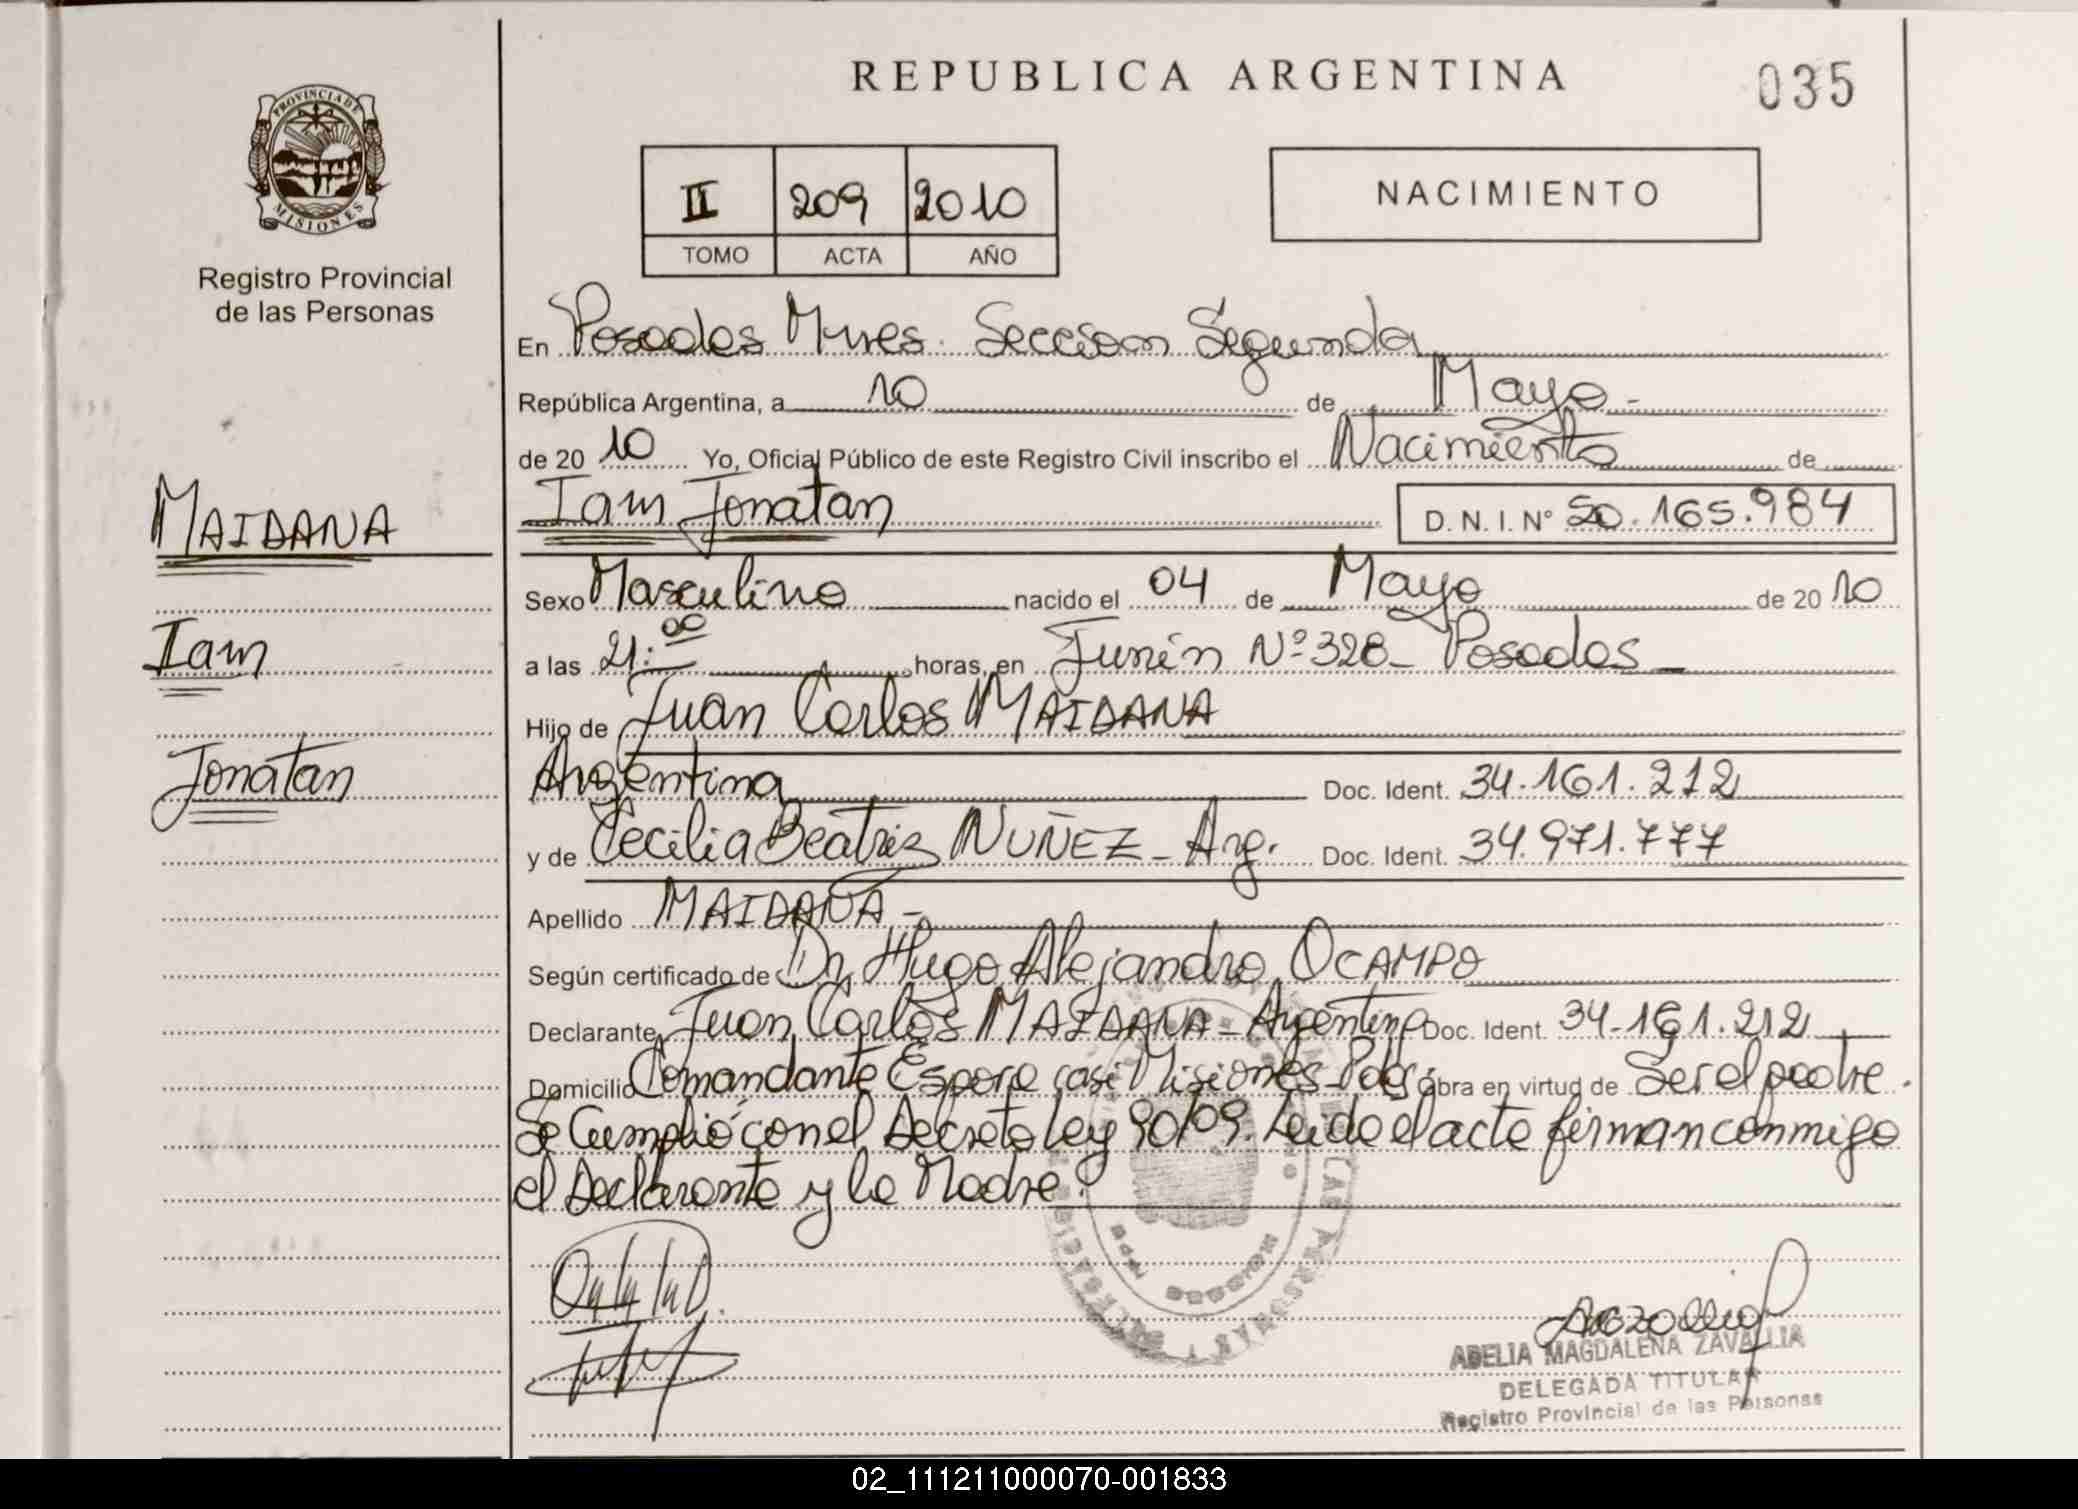 REPUBLICA ARGENTINA
035
PROVINCIA DE
MISIONES
Registro Provincial
de las Personas
II 209 2010
TOMO ACTA AÑO
NACIMIENTO
En Posadas Mnes. Seccion Segunda
República Argentina, a 10 de Mayo -
de 20 10 Yo, Oficial Público de este Registro Civil inscribo el Nacimiento de
Iam Jonatan D. N. I. Nº 50.165.984
MAIDANA
Iam
Jonatan
Sexo Masculino nacido el 04 de Mayo de 20 10
a las 21:00 horas, en Junín Nº 328 - Posadas -
Hijo de Juan Carlos MAIDANA
Argentina Doc. Ident. 34.161.212
y de Cecilia Beatriz NUÑEZ - Arg. Doc. Ident. 34.971.777
Apellido MAIDANA -
Según certificado de Dr. Hugo Alejandro OCAMPO
Declarante Juan Carlos MAIDANA - Argentino Doc. Ident. 34.161.212
Domicilio Comandante Espora casi Misiones - Pdas. Obra en virtud de Ser el padre.
Se Cumplió con el Decreto Ley 90/09. Leido el acto firman conmigo
el Declarante y la Madre.
ADELIA MAGDALENA ZAVALLIA
DELEGADA TITULAR
Registro Provincial de las Personas
02_111211000070-001833